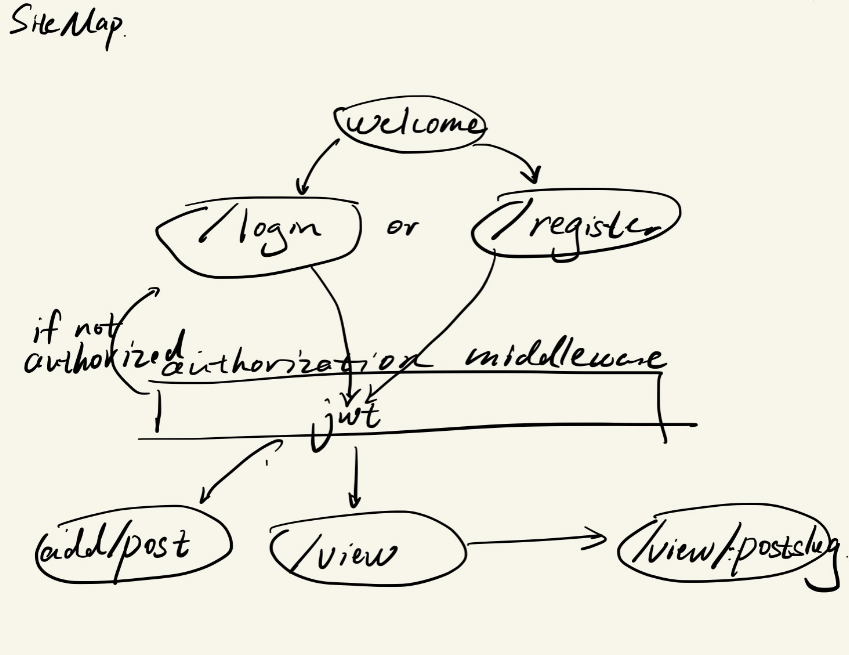 SiteMap.
welcome
/login or /register
if not
authorized
authorization middleware
jwt
add/post /view /view/:postslug